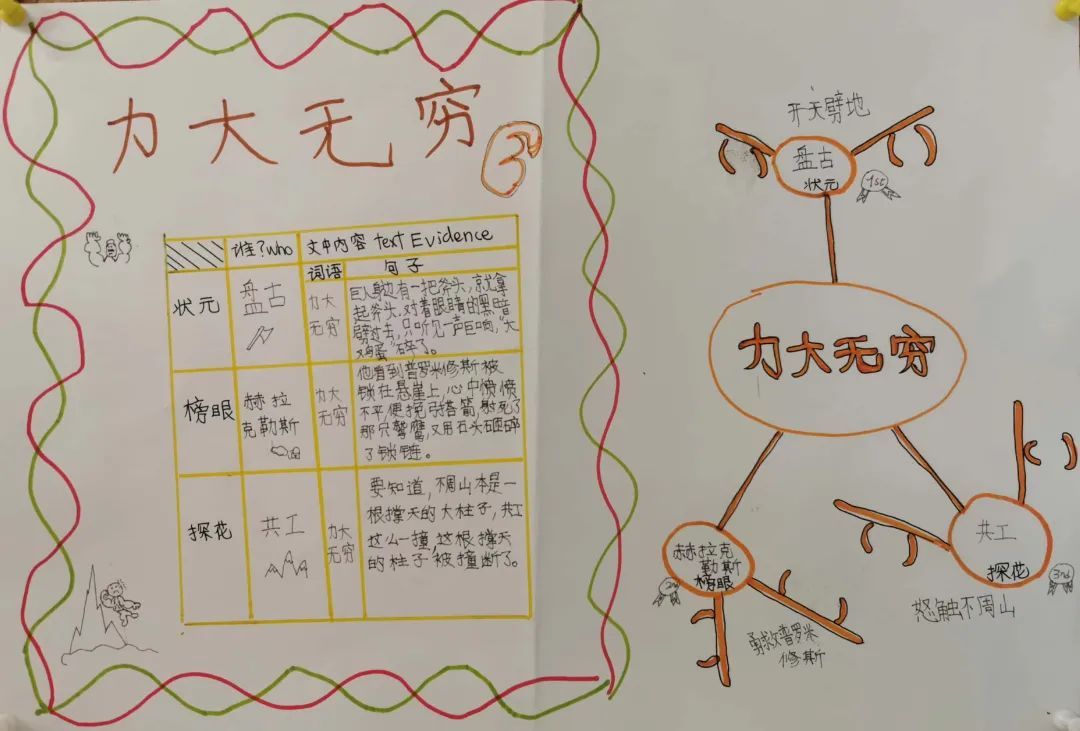 力大无穷
3
谁?who 文中内容 text Evidence
词语 句子
状元
盘古
力大
无穷
巨人身边有一把斧头,就拿
起斧头.对着眼睛的黑暗
劈过去,只听见一声巨响,"大
鸡蛋"碎了。
榜眼
赫拉
克勒斯
力大
无穷
他看到普罗米修斯被
锁在悬崖上,心中愤愤
不平,便挽弓搭箭,射死了
那只鹫鹰,又用石头砸碎
了锁链。
探花
共工
力大
无穷
要知道,不周山本是一
根撑天的大柱子,共工
这么一撞,这根撑天
的柱子被撞断了。
开天劈地
盘古
状元
1st
力大无穷
赫拉克
勒斯
榜眼
2nd
勇救普罗米
修斯
共工
探花
3rd
怒触不周山